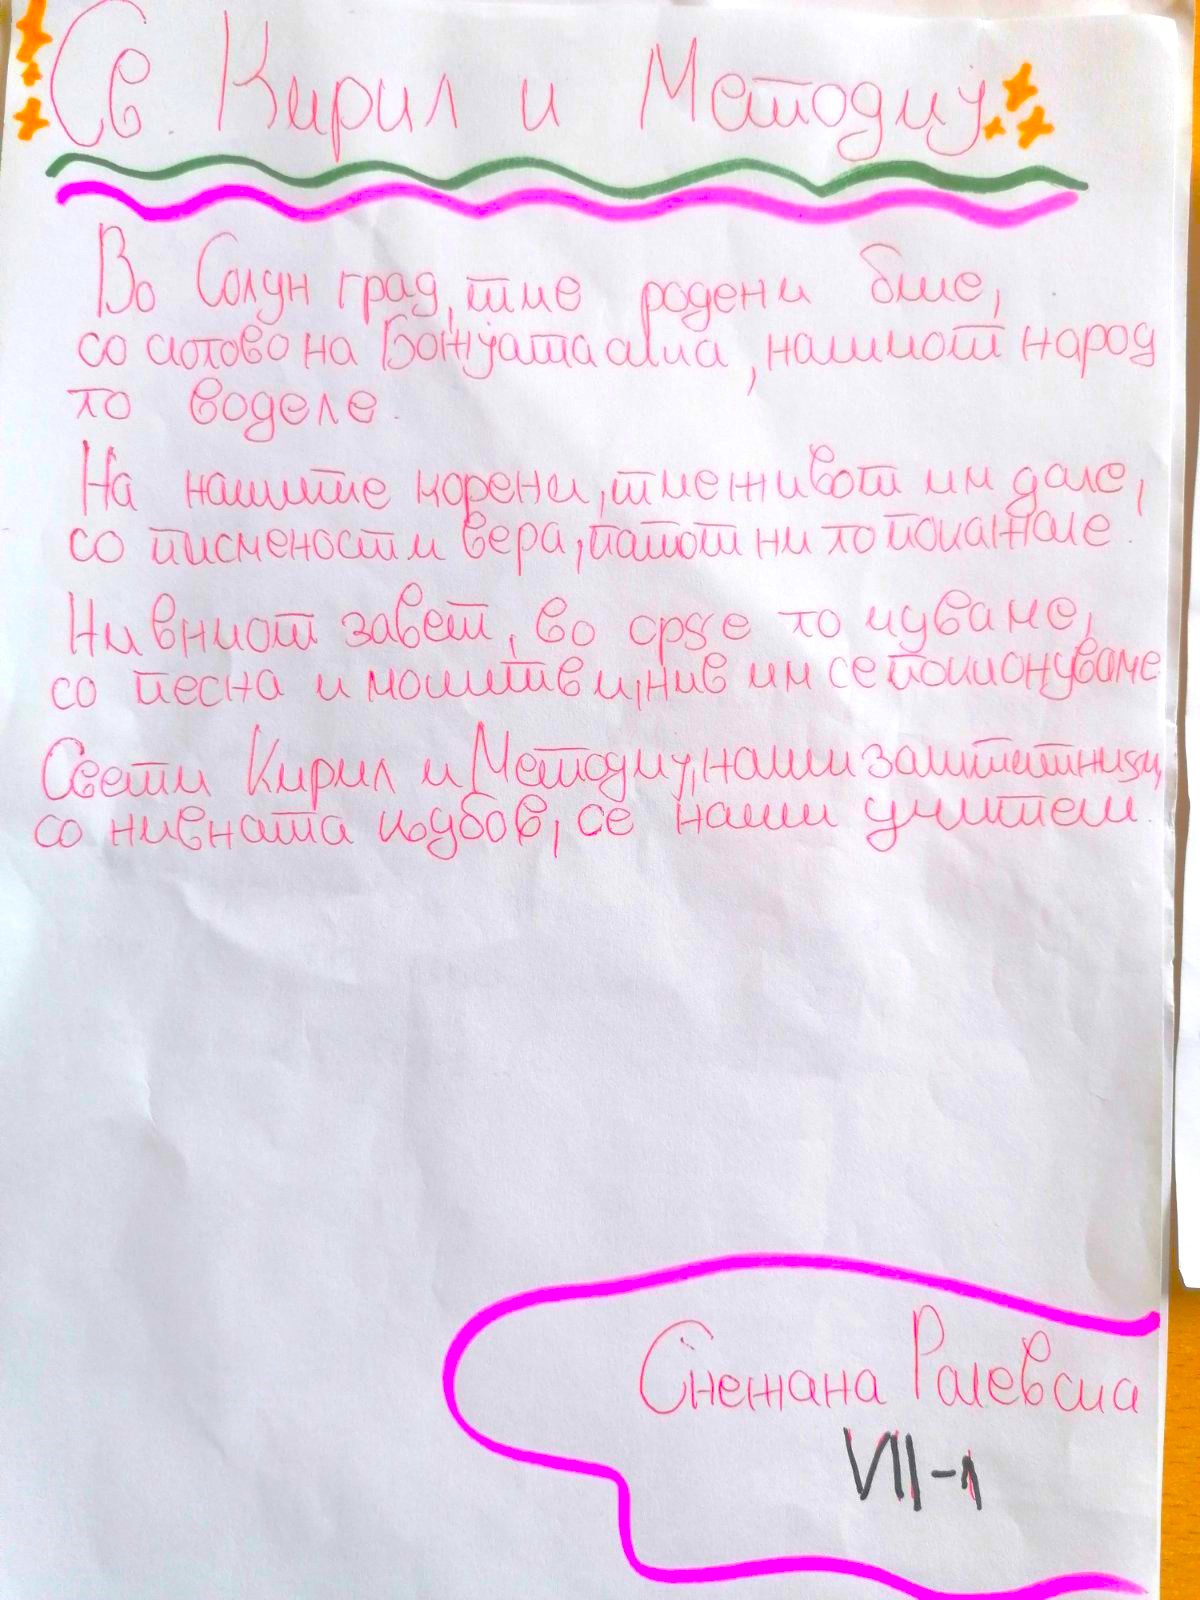 Св. Кирил и Методиј
Во Солун град, тие родени биле,
со слово на Божјата сила, нашиот народ
го водele.
На нашите корени, тие живот им дале,
со писменост и вера, патот ни го покажале.
Нивниот завет, во срце го чуваме,
со песна и молитви, нив им се поклонуваме
Свети Кирил и Методиј, наши заштитници,
со нивната љубов, се наши учители.
Снежана Ралевска
VII-1